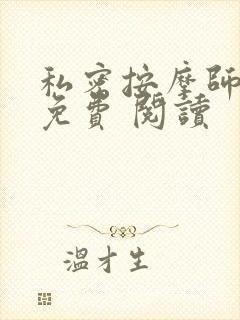 私密按摩師
免費 閱讀
溫才生